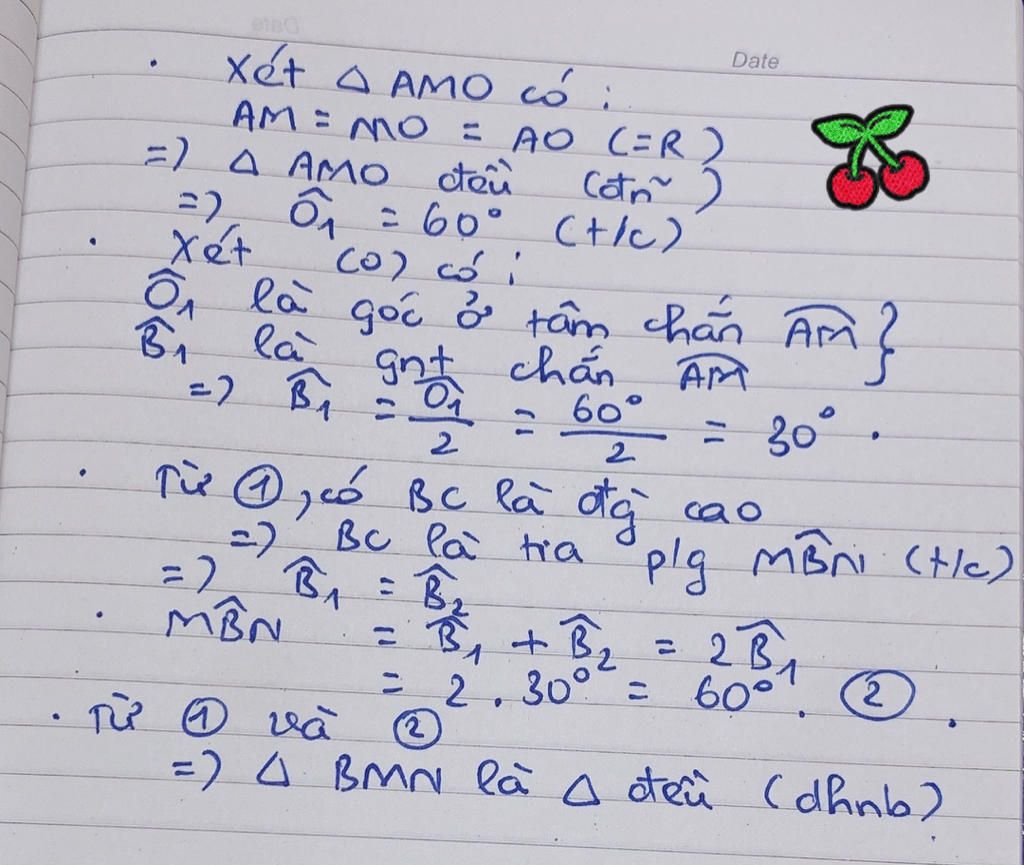 Date
. Xét △ AMO có :
AM = MO = AO (=R)
=) △ AMO đều (đn~)
=) Ô₁ = 60° (t/c)
. Xét (O) có :
Ô₁ là góc ở tâm chắn A͡M }
B̂₁ là gnt chắn A͡M
=) B̂₁ = Ô₁/2 = 60°/2 = 30° .
. Từ ①, có BC là đg̀ cao
=) BC là tia p/g MB̂N (t/c)
=) B̂₁ = B̂₂
. MB̂N = B̂₁ + B̂₂ = 2B̂₁
= 2 . 30° = 60° . ② .
. Từ ① và ②
=) △ BMN là △ đều (dhnb)